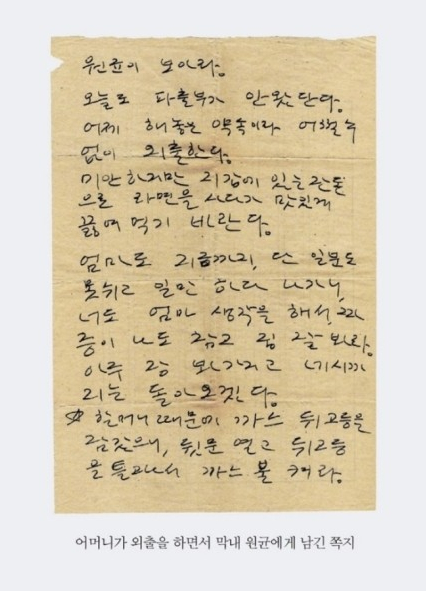 원균이 보아라.
오늘도 파출부가 안왔단다.
어제 해놓은 약속이라 어쩔수
없이 외출한다.
미안하지만 지갑에 있는 잔돈
으로 라면을 사다가 맛있게
끓여 먹기 바란다.
엄마도 지금까지, 단 일분도
못쉬고 일만 하다 나가니,
너도 엄마 생각을 해서, 짜
증이 나도 참고 집 잘 봐라.
아주 장 봐가지고 네시까
지는 돌아오겠다.
할머니 때문에 까스 뒤고등을
잠갔으니, 뒷문 열고 뒤고등
을 틀고나서 까스 불 켜라.
어머니가 외출을 하면서 막내 원균에게 남긴 쪽지